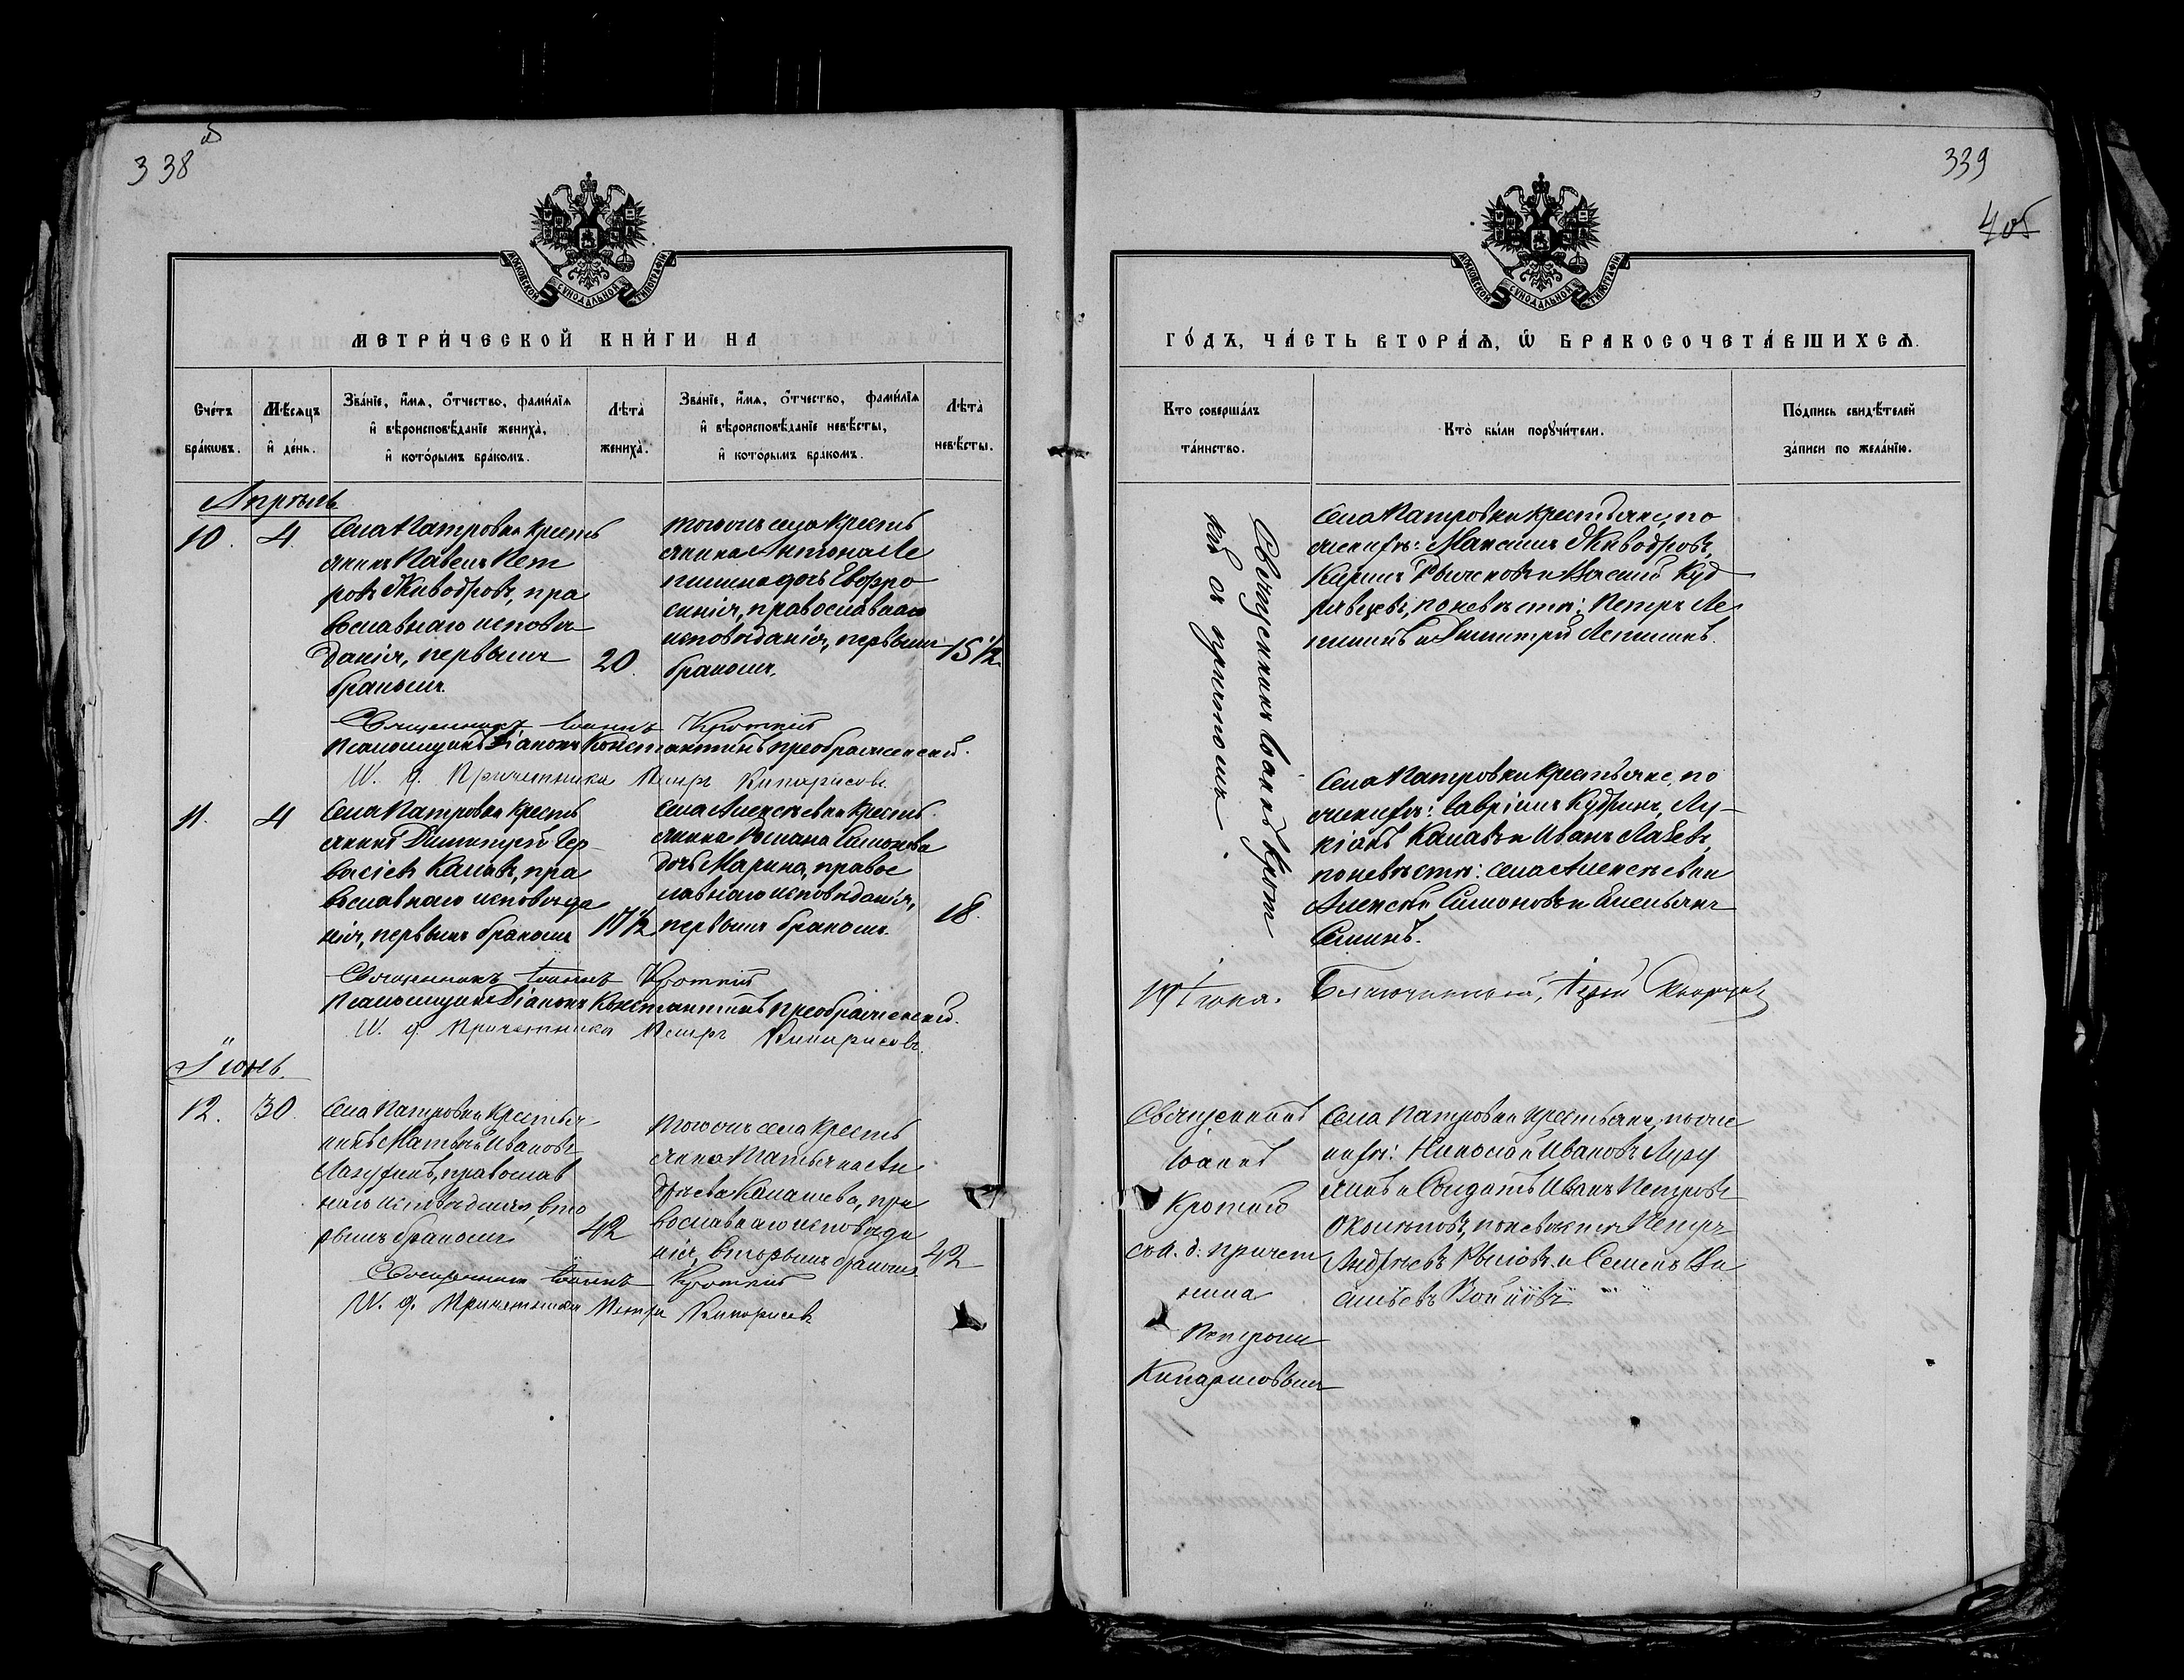 338 об
339
4 об
МОСКОВСКОЙ СѴНОДАЛЬНОЙ ТИПОГРАФІИ
МЕТРИ́ЧЕСКОЙ КНИ́ГИ НА
Сче́тъ бра́кѡвъ.
М҃ѣсяцъ и҆ де́нь.
Зва́нїе, и҆́мѧ, ѻ҆́тчество, фами́лїѧ
и҆ вѣроисповѣ́данїе жениха̀,
и҆ кото́рымъ бра́комъ.
Лѣта̀ жениха̀.
Зва́нїе, и҆́мѧ, ѻ҆́тчество, фами́лїѧ
и҆ вѣроисповѣ́данїе невѣ́сты,
и҆ кото́рымъ бра́комъ.
Лѣта̀ невѣ́сты.
Апрѣль
10. 4.
Села Патровки кресть
янинъ Павелъ Пет
ровъ Живодровъ, пра
вославнаго исповѣ
данія, первымъ
бракомъ.
20.
тогожъ села кресть
янина Антона Ле
пишина дочь Евфро
синія, православнаго
исповѣданія, первымъ
бракомъ.
15 ½.
Священникъ Іоаннъ Кроткій
Псаломщикъ Діаконъ Константинъ Преображенскій.
И. д. Причетника Петръ Кипарисовъ.
11. 4
Села Патровки кресть
янинъ Димитрій Гер
васіевъ Калавъ, пра
вославнаго исповѣда
нія, первымъ бракомъ
17½
Села Алексѣевки кресть
янина Романа Симонова
дочь Марина, правос
лавнаго исповѣданія,
первымъ бракомъ.
18.
Священникъ Іоаннъ Кроткій
Псаломщикъ Діаконъ Константинъ Преображенскій.
И. д. Причетника Петръ Кипарисовъ.
Іюнь.
12. 30.
Села Патровки крестья
нинъ Матвѣй Ивановъ
православ
наго исповѣданія, вто
рымъ бракомъ
42
Тогожъ села кресть
янка Татьяна Ан
дрѣева Калашева, пра
вославнаго исповѣда
нія, вторымъ бракомъ
42
Священникъ Іоаннъ Кроткій
И. д. Причетника Петръ Кипарисовъ
ГО́ДЪ, ЧА́СТЬ ВТОРА́Ѧ, Ѡ҆ БРАКОСОЧЕТА́ВШИХСѦ.
Кто соверша́лъ
та́инство.
Кто̀ бы́ли порꙋчи́тели.
По́дпись свидѣ́телей
за́писи по жела́нїю.
Священникъ Іоаннъ Крот
кій съ причтомъ.
Села Патровки крестьяне, по
женихѣ: Максимъ Живодровъ,
Кирилъ Рыжковъ и Василій Куд
рявцевъ, по невѣстѣ: Петръ Ле
пишинъ и Димитрій Лепишинъ.
Села Патровки крестьяне, по
женихѣ: Савріилъ Кудринъ, Лу-
кіянъ Калавъ и Иванъ Лазевъ,
по невѣстѣ: села Алексѣевки
Алексѣй Симоновъ и Емельянъ
Семинъ.
19 Іюня. Благочинный, Іерей
Священникъ
Іоаннъ
Кроткій
съ и. д. причет
ника
Петромъ
Кипарисовымъ
Села Патровки крестьяне, по же
нихѣ: Николай Ивановъ
и Солдатъ Иванъ Петровъ
по невѣстѣ Петръ
Андрѣевъ Рыловъ и Семенъ Ва
сильевъ Войновъ